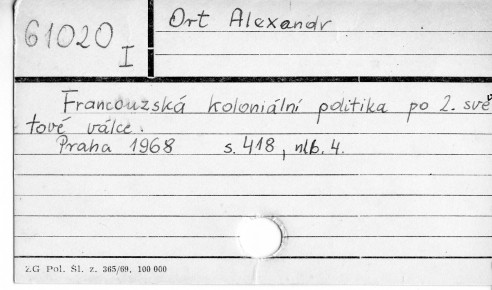 Ort Alexandr
61020
I
Francouzská koloniální politika po 2. svě
tové válce.
Praha 1968 s. 418, nlb. 4.
ZG Pol. Śl. z. 365/69, 100 000